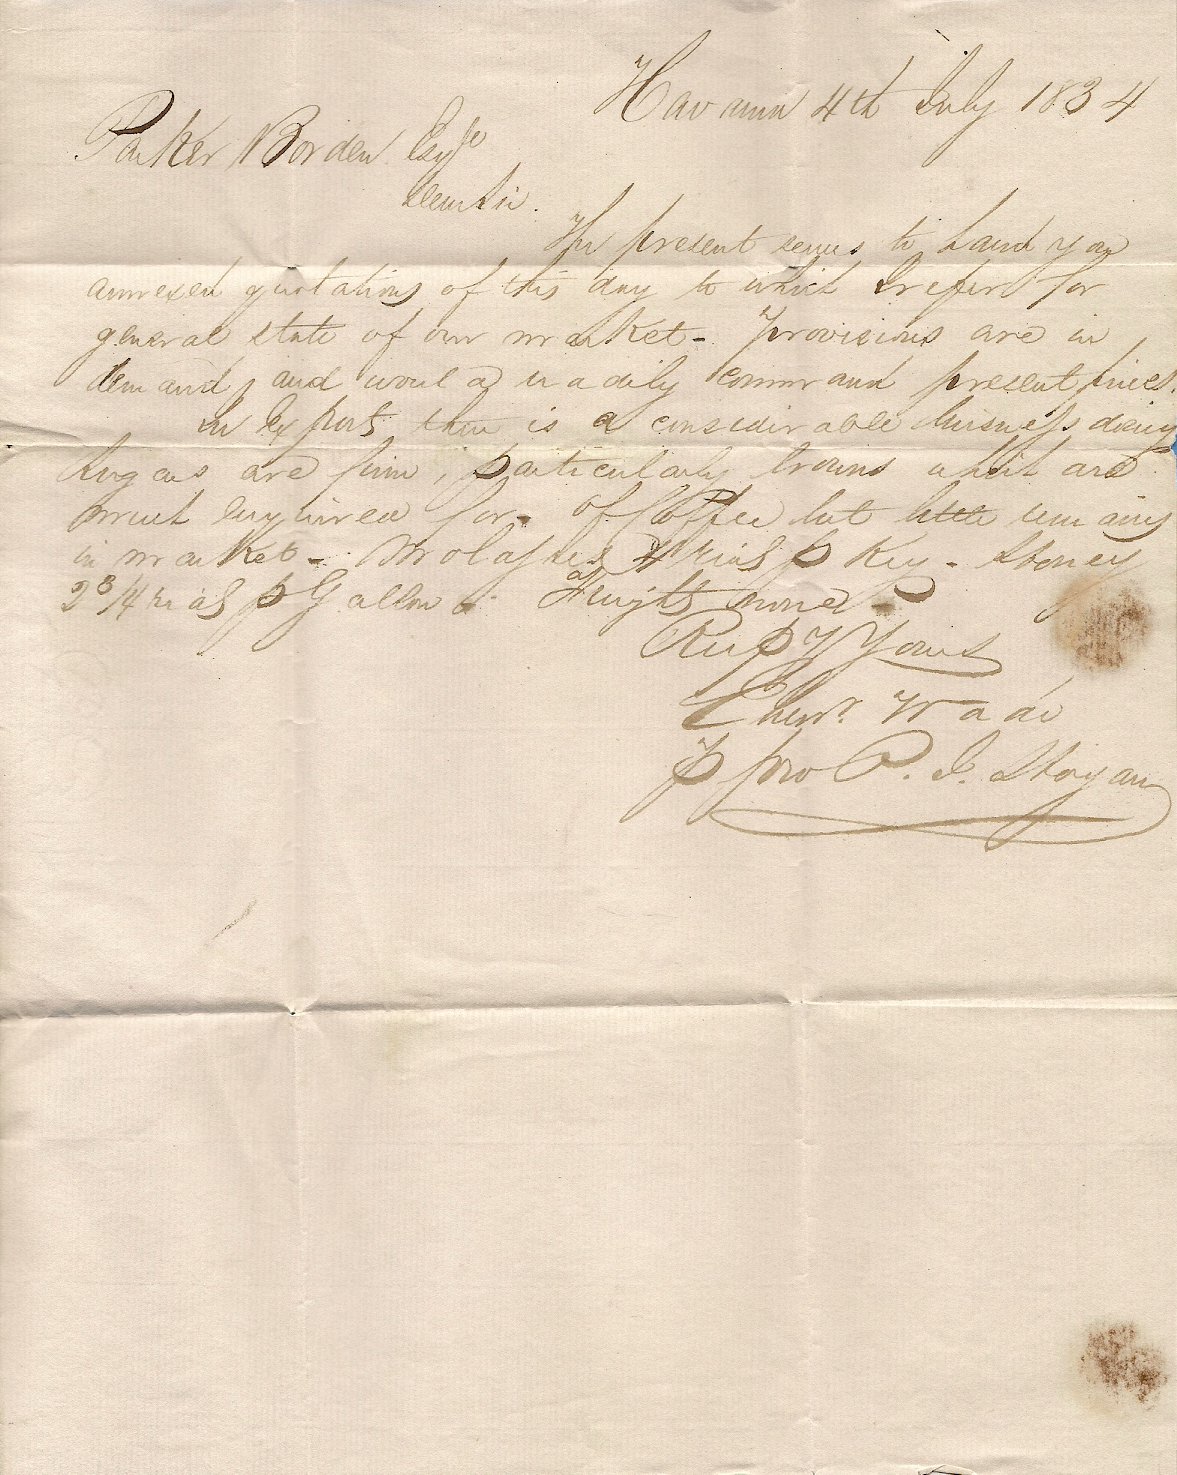 Havana 4th July 1834
Parker Borden Esqre
Dear Sir.
The present serves to hand you
annexed quotations of this day to which I refer for
general state of our market - Provisions are in
demand, and would readily command present prices.
In Exports there is a considerable buisness doing
Sugars are firm, particularly browns which are
much enquired for - Of Coffee but little remains
in market - Molasses rials p Key - Honey
2 3/4 rials p Gallon - Freights none -
Respy Yours
Wade
p pro P. J. Hogan